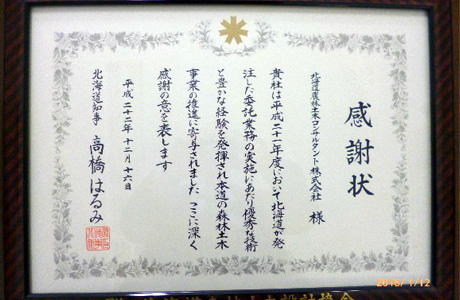 感謝状
北海道農林土木コンサルタント株式会社 様
貴社は平成二十一年度において北海道が発
注した委託業務の実施にあたり優秀な技術
と豊かな経験を発揮され本道の森林土木
事業の推進に寄与されました ここに深く
感謝の意を表します
平成二十二年十二月十六日
北海道知事 高橋はるみ
2016/1/12